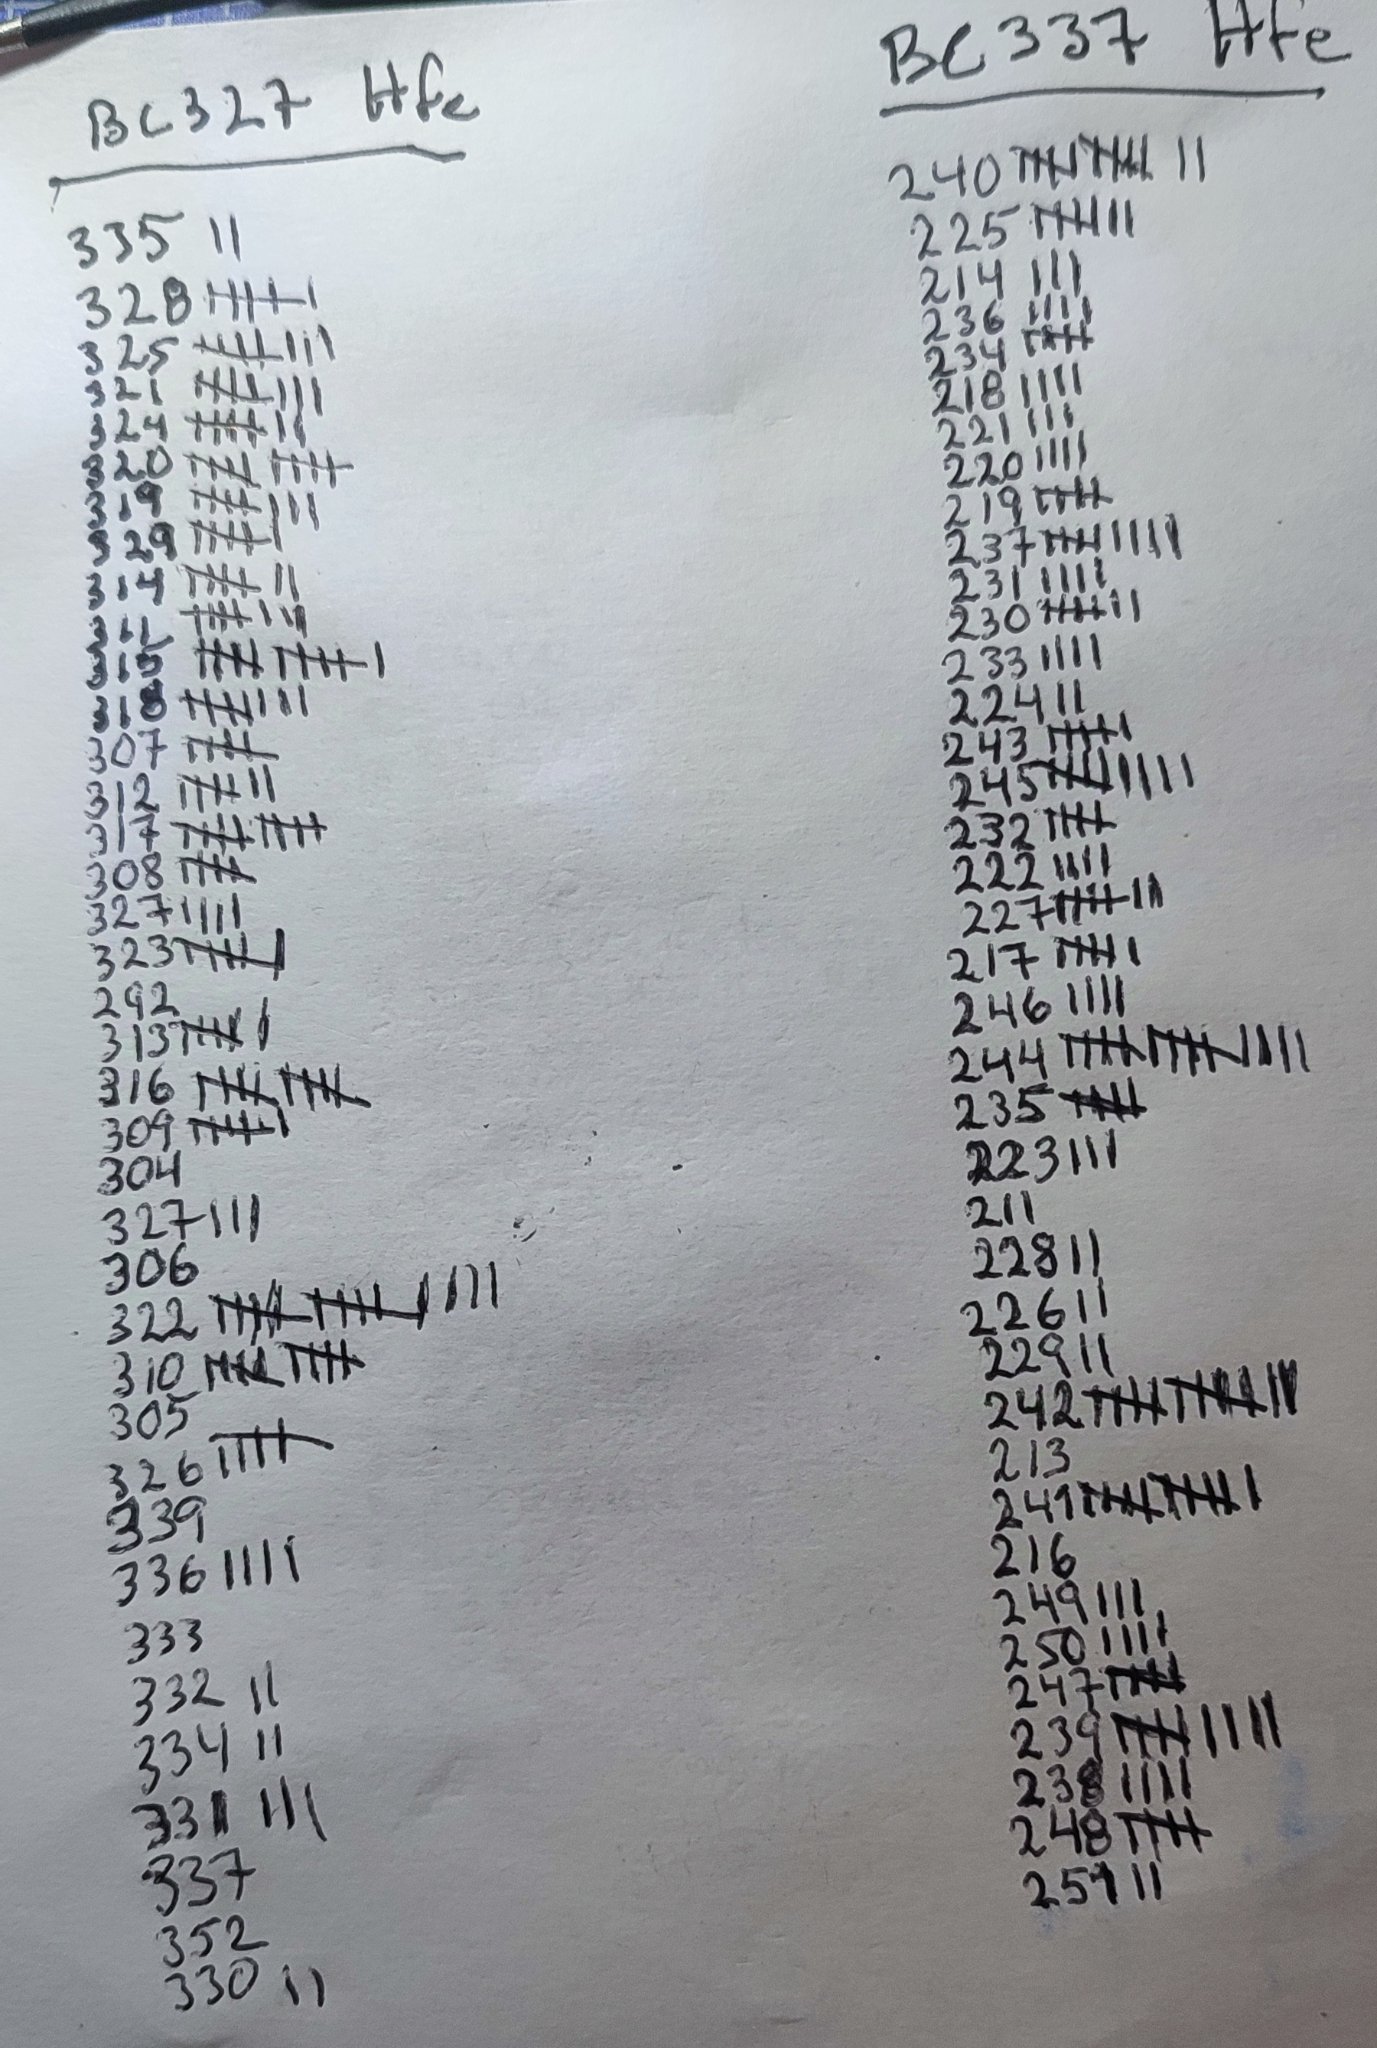 BC327 Hfe
335 ||
328 |||| |
325 |||| |||
321 |||| |||
324 |||| ||
320 |||| ||||
319 |||| |||
329 |||| |
314 |||| ||
311 |||| |||
315 |||| |||| |
318 |||| |||
307 ||||
312 |||| ||
317 |||| ||||
308 ||||
327 ||||
323 |||| |
292
313 |||| |
316 |||| ||||
309 |||| |
304
327 |||
306
322 |||| |||| ||||
310 |||| ||||
305
326 ||||
339
336 ||||
333
332 ||
334 ||
331 |||
337
352
330 ||
BC337 Hfe
240 |||| |||| ||
225 |||| ||
214 |||
236 ||||
234 ||||
218 ||||
221 |||
220 ||||
219 ||||
237 |||| ||||
231 ||||
230 |||| ||
233 ||||
224 ||
243 |||| |
245 |||| ||||
232 ||||
222 ||||
227 |||| ||
217 |||| |
246 ||||
244 |||| |||| ||||
235 ||||
223 |||
211
228 ||
226 ||
229 ||
242 |||| |||| |||
213
241 |||| |||| |
216
249 |||
250 ||||
247 ||||
239 |||| ||||
238 ||||
248 ||||
251 ||